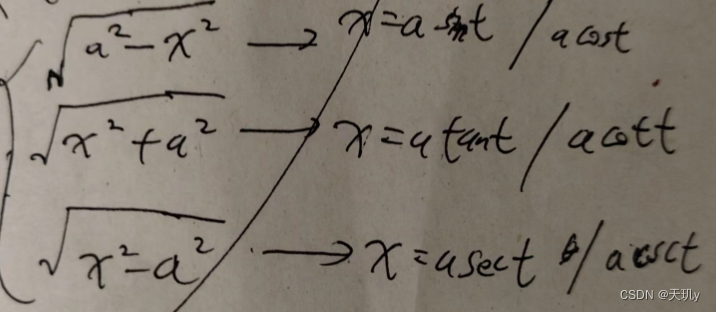 √(a² - x²) → x = a sint / a cost
√(x² + a²) → x = a tant / a cott
√(x² - a²) → x = a sect / a csct
CSDN @天玑y